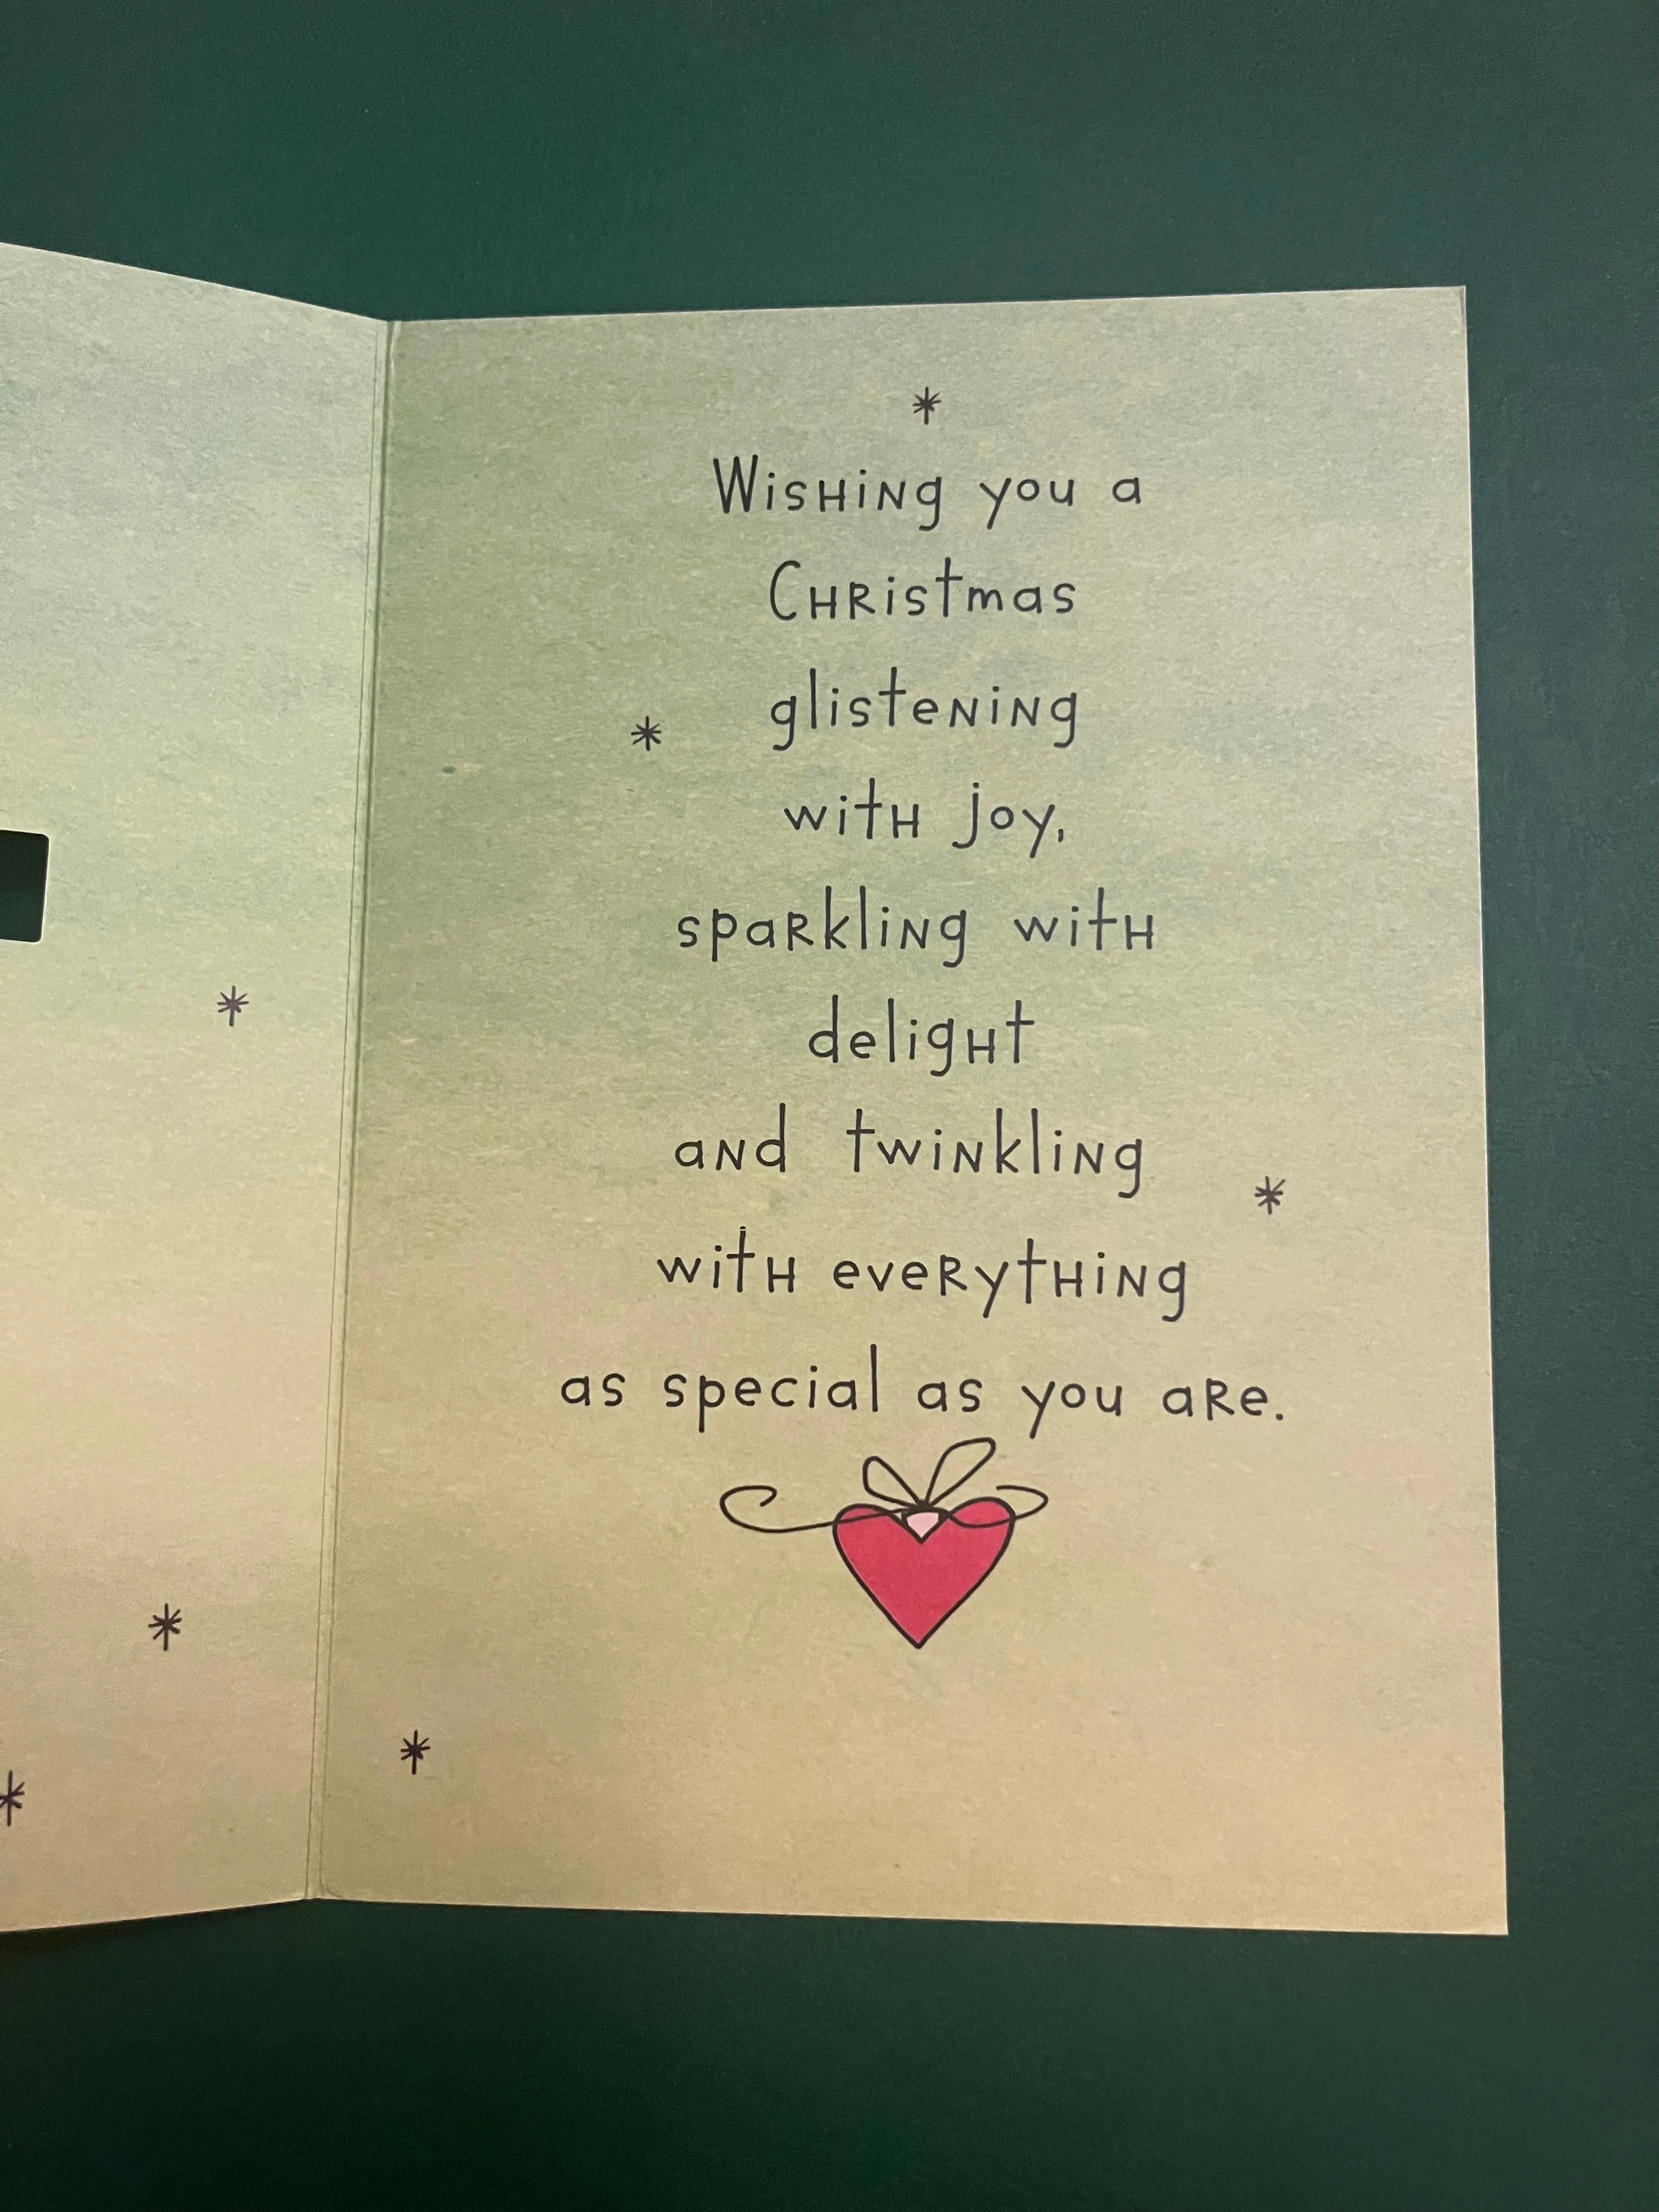 Wishing you a
Christmas
glistening
with joy,
sparkling with
delight
and twinkling
with everything
as special as you are.